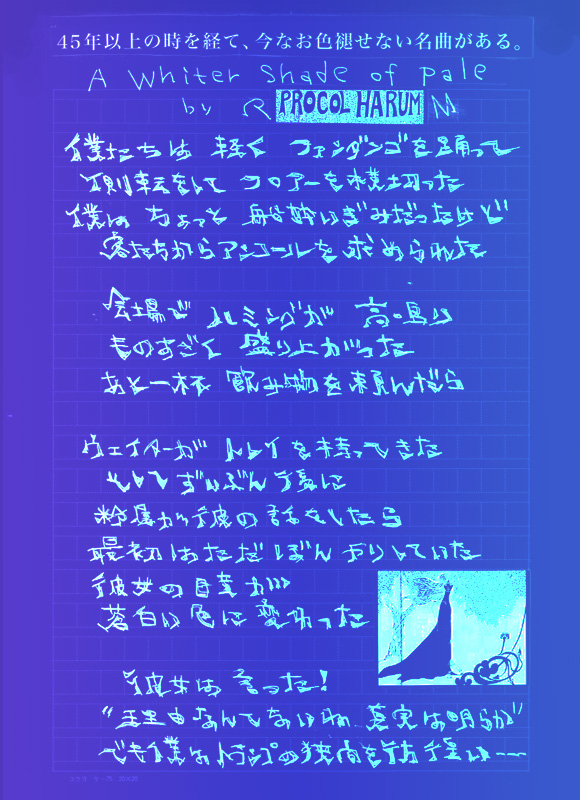 45年以上の時を経て、今なお色褪せない名曲がある。
A Whiter Shade of pale
by PROCOL HARUM
僕たちは 軽く ファンダンゴを踊って
側転をして フロアーを横切った
僕は ちょっと 船酔いぎみだったけど
客たちからアンコールを求められた
会場で ハミングが 高鳴り
ものすごく 盛り上がった
あと一杯 飲み物を頼んだら
ウェイターが トレイを持ってきた
そして ずいぶん 後に
粉屋が 彼の 話をしたら
最初はただ ぼんやりしていた
彼女の 目差が
蒼白い 色に 変わった
彼女は 言った!
"理由なんてないわ 真実は明らか"
でも僕は トランプの